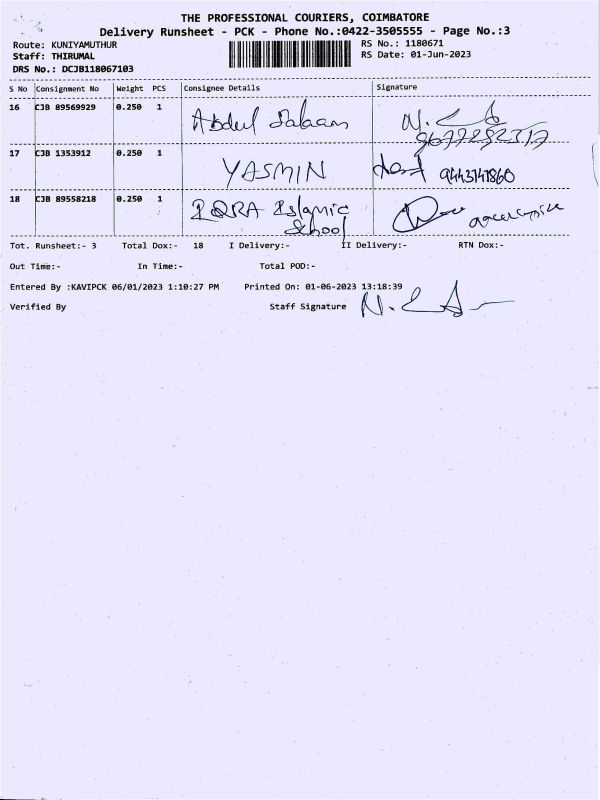 THE PROFESSIONAL COURIERS, COIMBATORE
Delivery Runsheet - PCK - Phone No.:0422-3505555 - Page No.:3
Route: KUNIYAMUTHUR RS No.: 1180671
Staff: THIRUMAL RS Date: 01-Jun-2023
DRS No.: DCJB118067103
S No Consignment No Weight PCS Consignee Details Signature
16 CJB 89569929 0.250 1 Abdul Salaam
17 CJB 1353912 0.250 1 YASMIN 9443141860
18 CJB 89558218 0.250 1 IQRA Islamic
School
Tot. Runsheet:- 3 Total Dox:- 18 I Delivery:- II Delivery:- RTN Dox:-
Out Time:- In Time:- Total POD:-
Entered By :KAVIPCK 06/01/2023 1:10:27 PM Printed On: 01-06-2023 13:18:39
Verified By Staff Signature